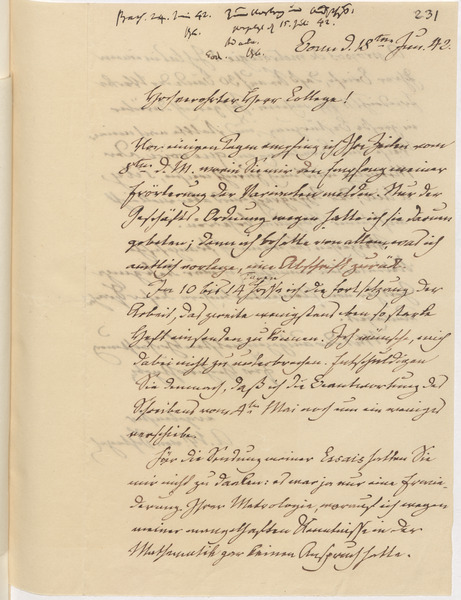 231
24. Juni 42.
15. Juli 42.
Bonn d. 18ten Jun. 42.
Hochverehrter Herr College!
Vor einigen Tagen empfing ich Ihre Zeilen vom
8ten d. M. worin Sie mir den Empfang meiner
Erörterung der Varianten melden. Nur der
Geschäfts-Ordnung wegen hatte ich sie darum
gebeten; denn ich behalte von allem, was ich
amtlich vorlege, eine Abschrift zurück.
In 10 bis 14 Tagen hoffe ich die Fortsetzung der
Arbeit, das zweite wenigstens eben so starke
Heft einsenden zu können. Ich wünsche, mich
dabei nicht zu unterbrechen. Entschuldigen
Sie demnach, daß ich die Beantwortung des
Schreibens vom 4ten Mai noch um ein weniges
verschiebe.
Für die Sendung meiner Essais hatten Sie
mir nicht zu danken: es war ja nur eine Erwie-
derung Ihrer Metrologie, worauf ich wegen
meiner mangelhaften Kenntnisse in der
Mathematik gar keinen Anspruch hatte.